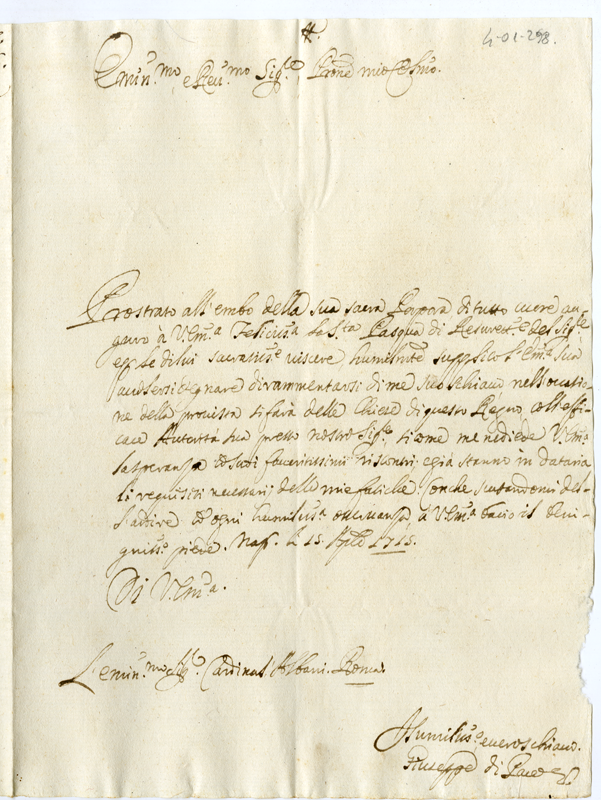 4-01-298.
Emin.mo e Reu.mo Sig.e Prone mio Col.mo
Prostrato all'embo della sua sacra Porpora di tutto cuore au-
guro à V.Em.a Felicis.a la S.ta Pasqua di Resurett.e del Sig.e
e p le di lui sacratis.e viscere humilmte supplico l'Em.a Sua
à volersi degnare di rammentarsi di me suo schiavo nell'occasio-
ne della provista si farà delle Chiese di questo Regno, coll'effi-
cace Autorità sua presso nostro Sig.e, si come me ne diede V.Em.a
la speranza co suoi favoritissimi riscontri; e già stanno in Dataria
li requisiti necessarij delle mie fatiche: sonche scusandomi del-
l'ardire co ogni humilis.a osservanza à V.Em.a bacio il beni-
gnis.o piede. Nap. li 15. Aple 1715.
Di V.Em.a.
L'emin.mo Sig.e Cardinal Albani. Roma.
Humilis.o e vero schiavo.
Giuseppe di Pace